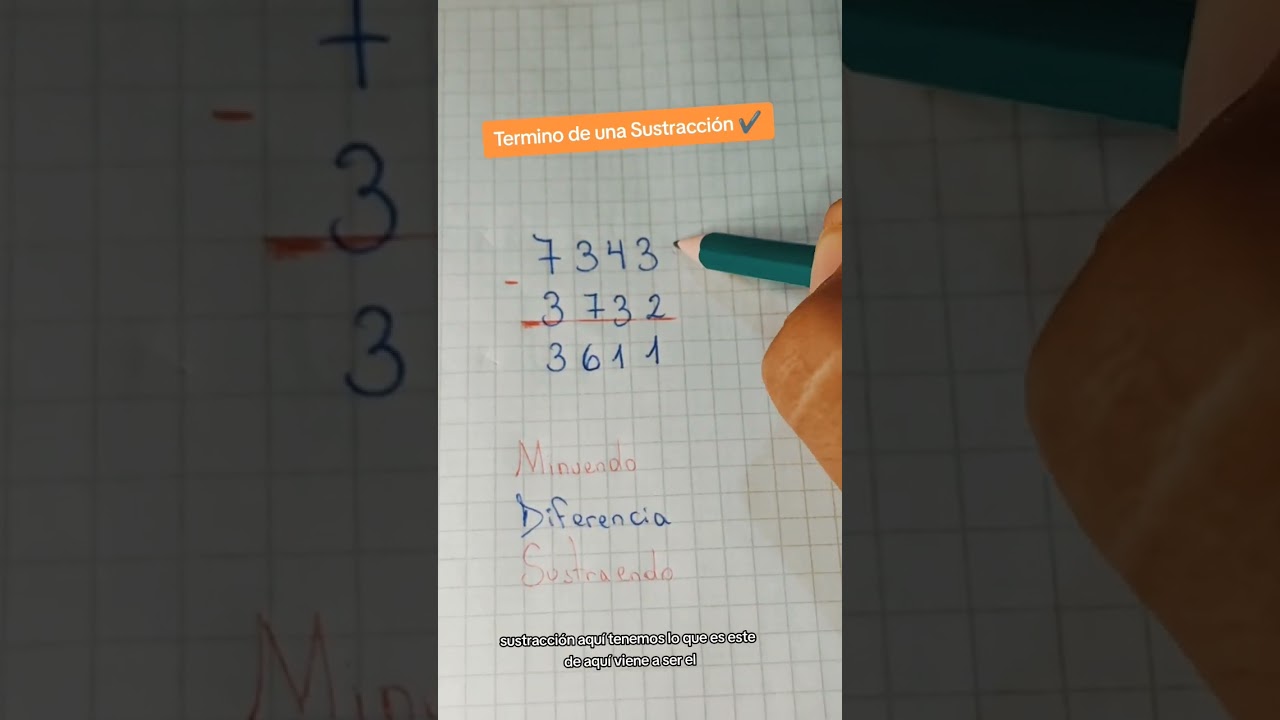 Termino de una Sustracción ✔
7343
-
3732
3611
Minuendo
Diferencia
Sustraendo
sustracción aquí tenemos lo que es este
de aquí viene a ser el